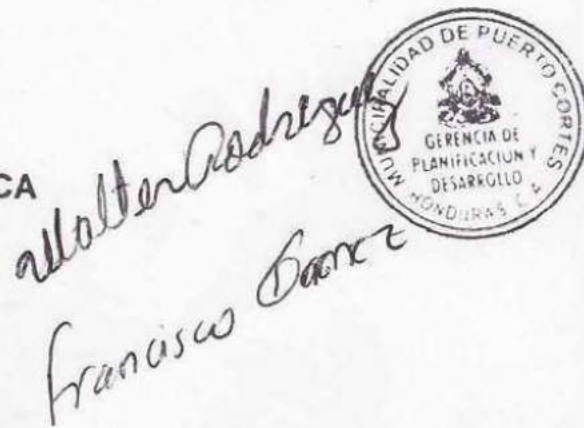 CA
Walter Rodriguez
Francisco
MUNICIPALIDAD DE PUERTO CORTES
GERENCIA DE
PLANIFICACION Y
DESARROLLO
HONDURAS C A